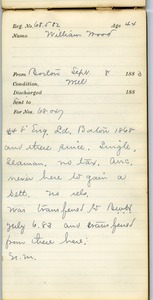 Reg. No. 68,582 Age 44
Name William Wood
From Boston Sept. 8 1883
Condition, Well
Discharged 188
Sent to
For No.
Eng. Ld. Boston 1868
and there since. Single,
Seaman, no tax. Anc.
never here to gain a
sett. no rels.
Was transferred to
July 6.83 and transferred
from there here.